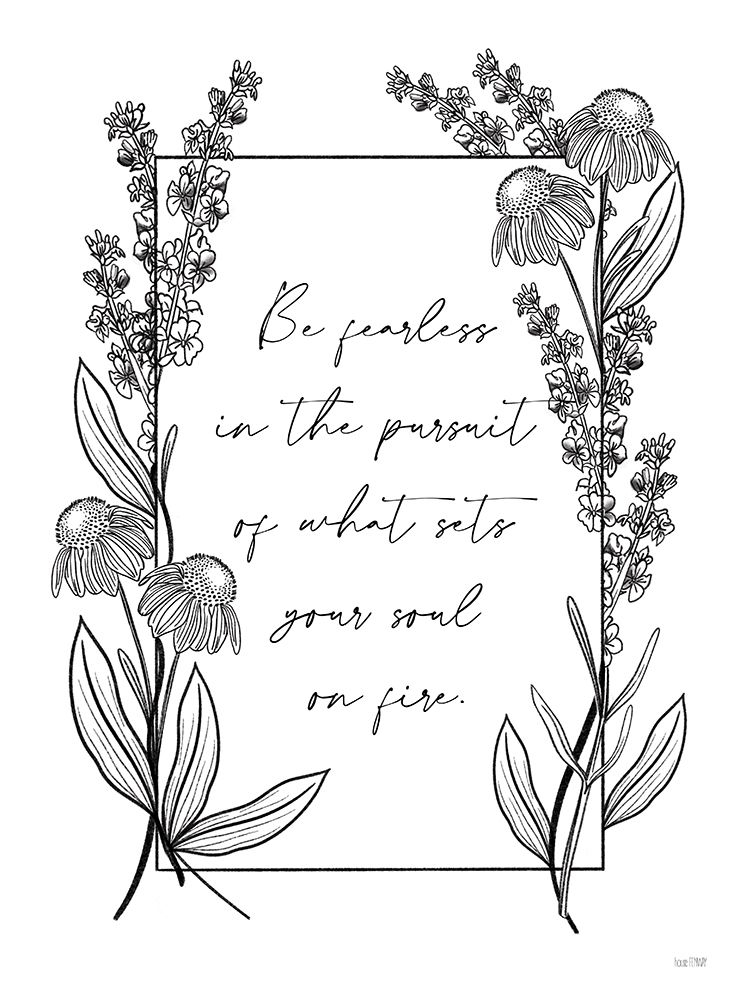 Be fearless
in the pursuit
of what sets
your soul
on fire.
house FENWAY